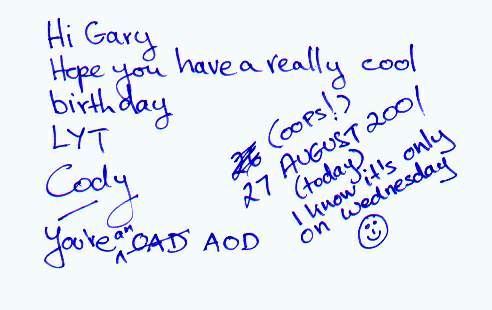 Hi Gary
Hope you have a really cool
birthday
LYT
Cody
You're an OAD AOD
26 (oops!)
27 AUGUST 2001
(today)
I know it's only
on wednesday